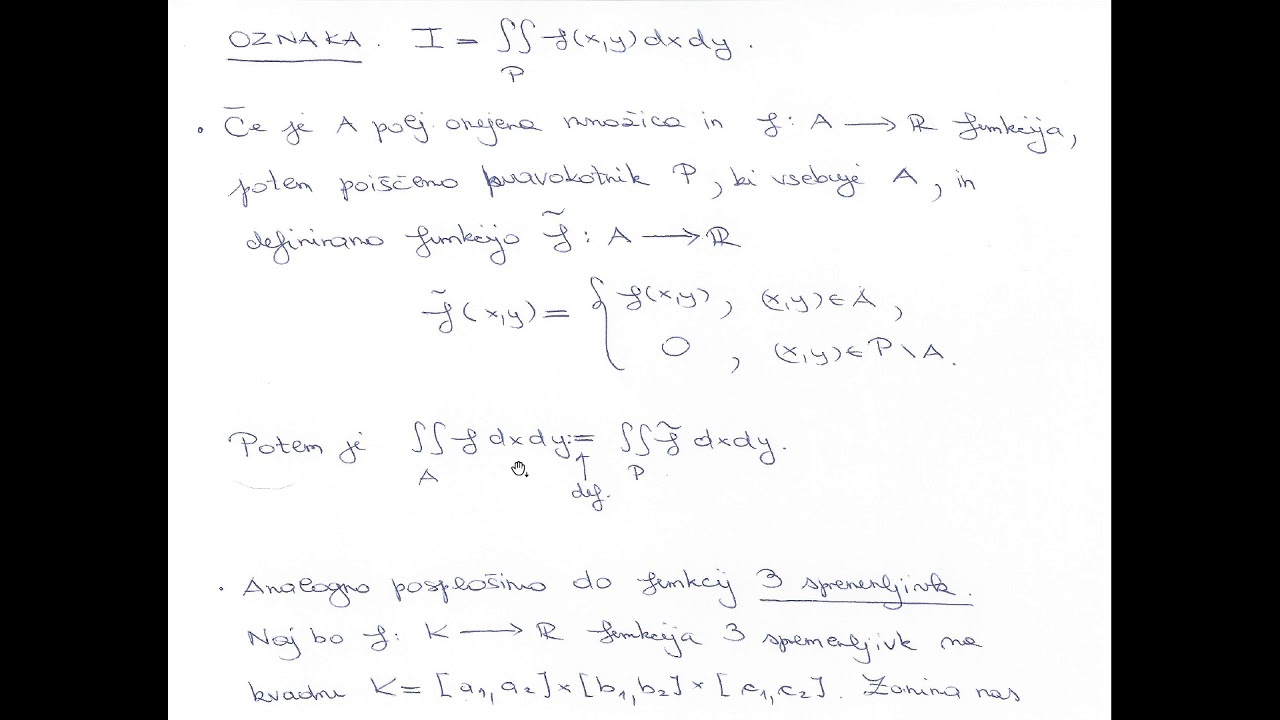 OZNAKA. I = ∬ f(x,y) dx dy.
P
• Če je A polj. omejena množica in f: A → ℝ funkcija,
potem poiščemo pravokotnik P, ki vsebuje A, in
definiramo funkcijo f̃: A → ℝ
f̃(x,y) = { f(x,y), (x,y) ∈ A,
0, (x,y) ∈ P \ A.
Potem je ∬ f dx dy := ∬ f̃ dx dy.
A P
def.
• Analogno posplošimo do funkcij 3 spremenljivk.
Naj bo f: K → ℝ funkcija 3 spremenljivk na
kvadru K = [a₁, a₂] × [b₁, b₂] × [c₁, c₂]. Zanima nas